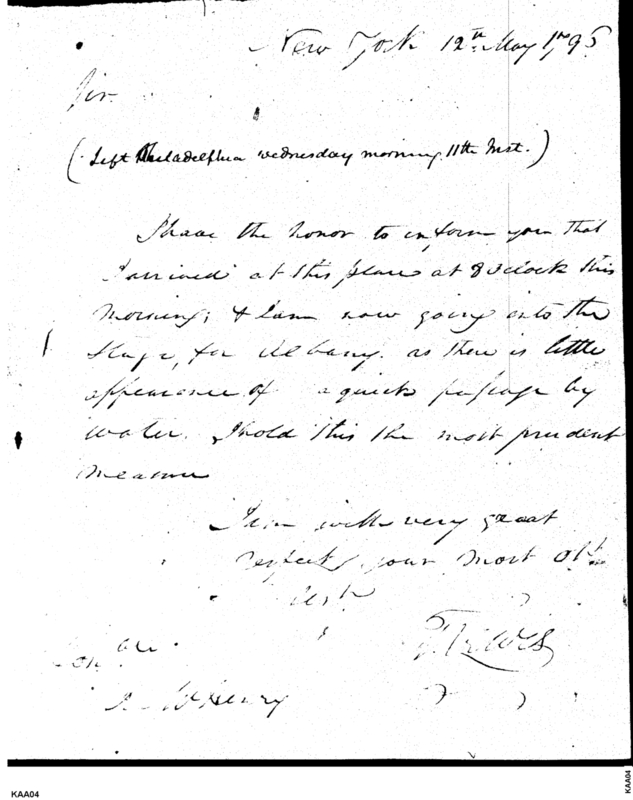 New York 12th May 1795
Sir
(Left Philadelphia wednesday morning 11th Inst.)
I have the honor to inform you that
I arrived at this place at 8 oclock this
morning; & I am now going into the
Stage, for Albany. as there is little
appearance of a quick passage by
water. I hold this the most prudent
measure
I am with very great
respect, your most Obt
Servt
McHenry
KAA04
KAA04